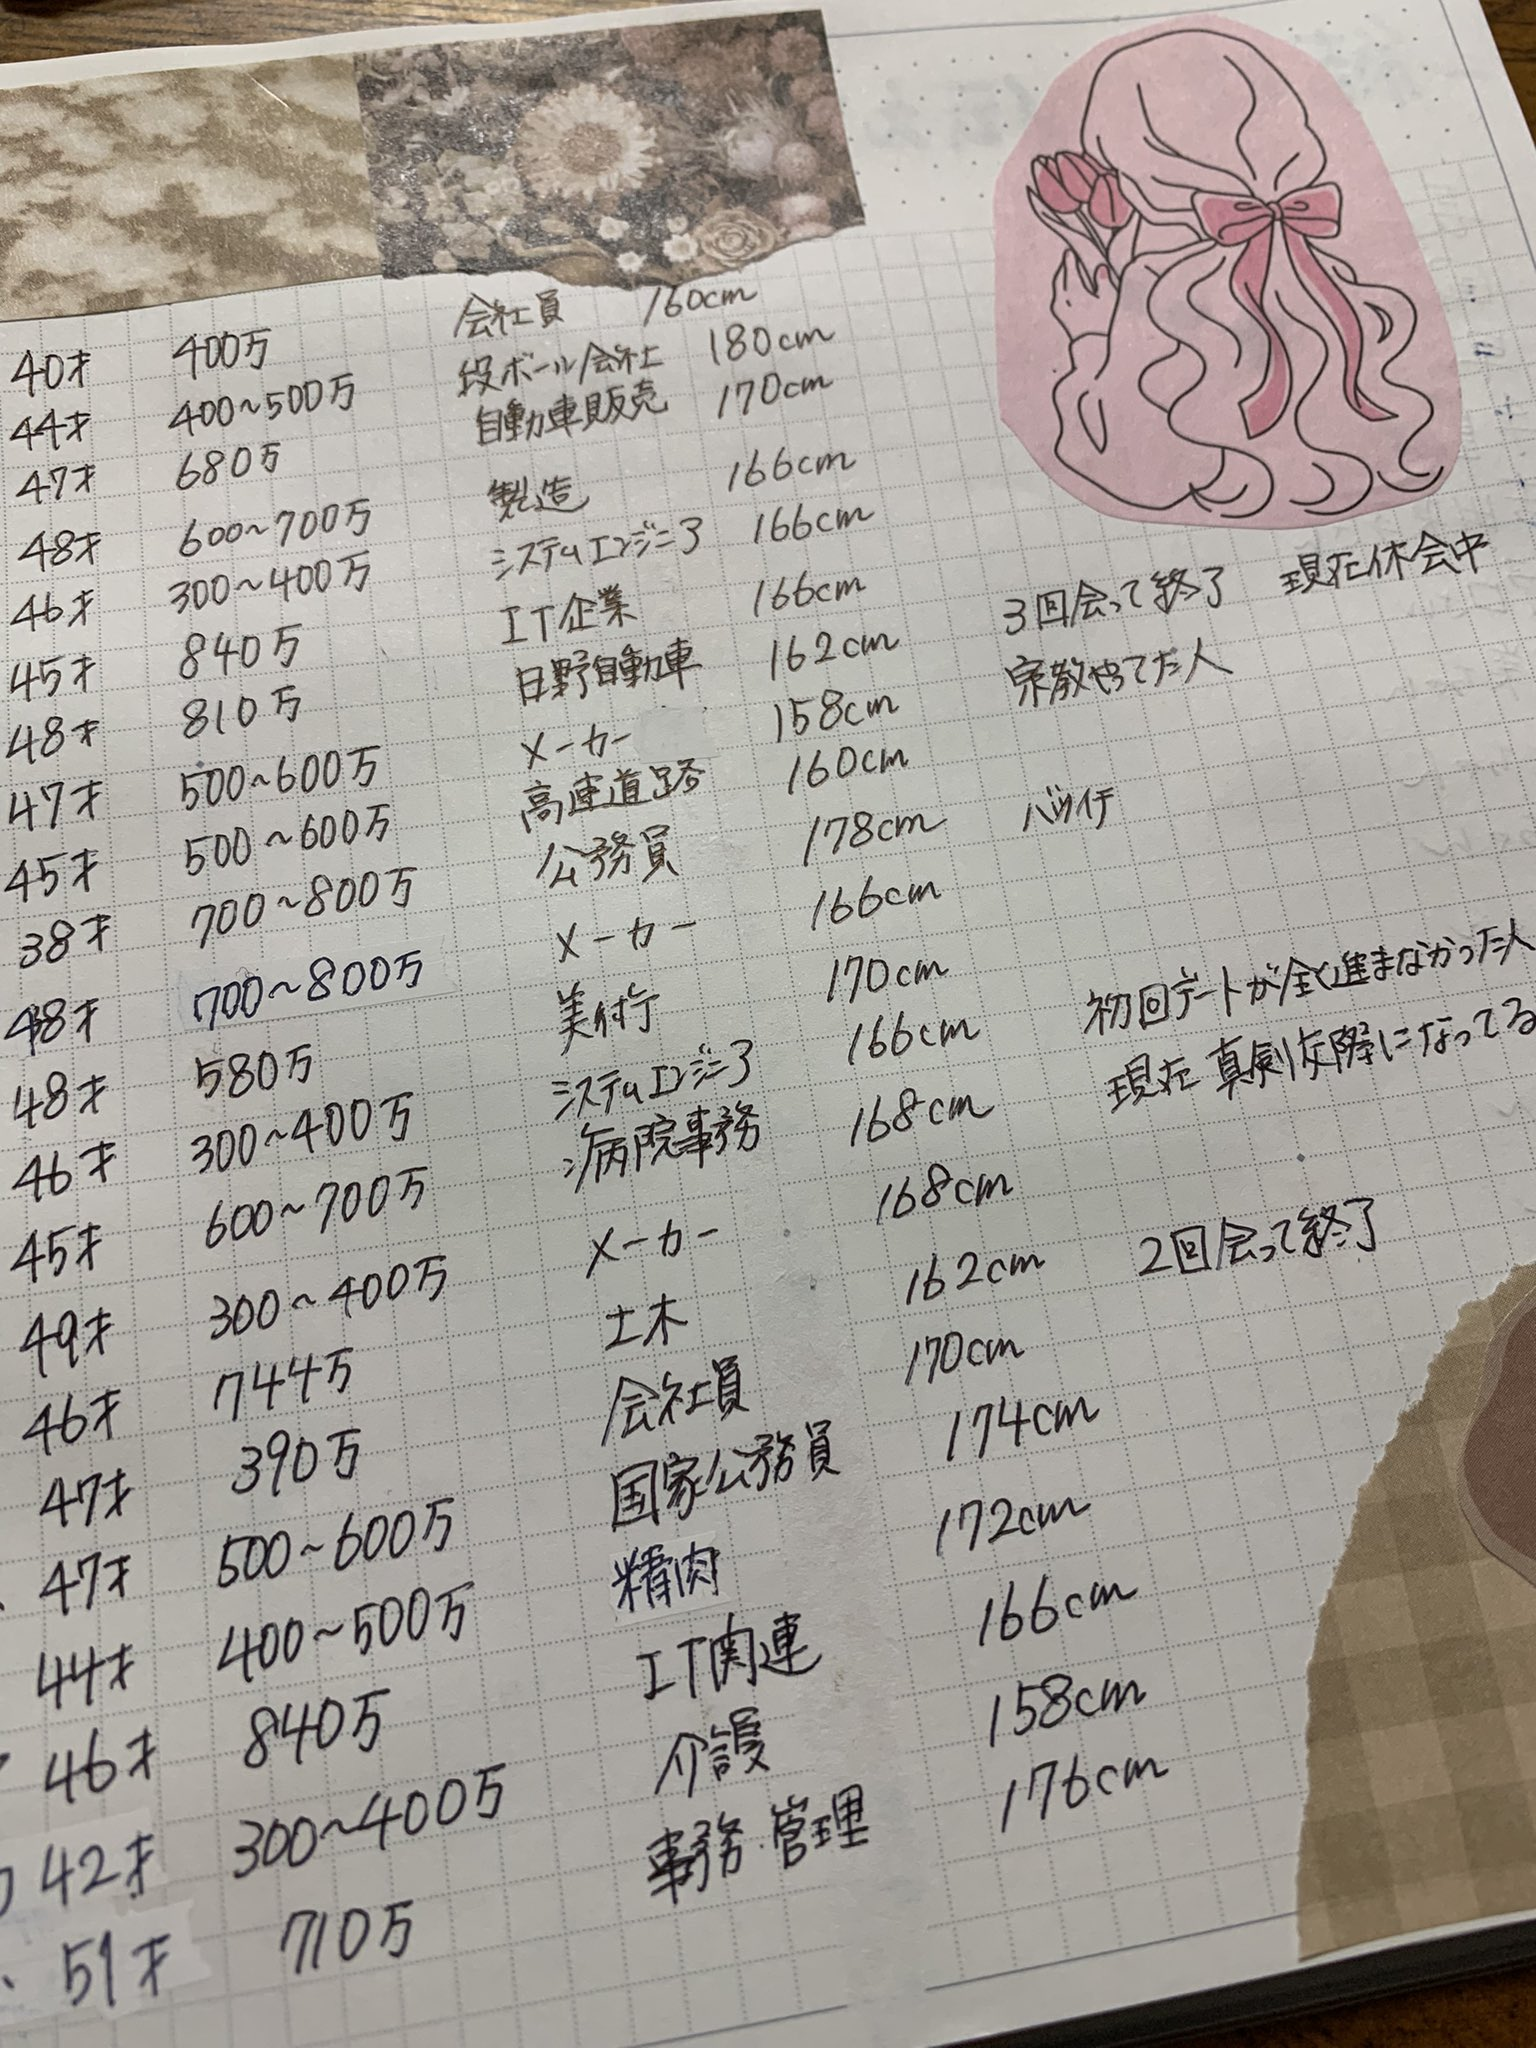 40才 400万 会社員 160cm
44才 400~500万 段ボール会社 180cm
47才 680万 自動車販売 170cm
48才 600~700万 製造 166cm
46才 300~400万 システムエンジニア 166cm
45才 840万 IT企業 166cm
48才 810万 日野自動車 162cm 3回会って終了 現在休会中
47才 500~600万 メーカー 158cm 宗教やってた人
45才 500~600万 高速道路 160cm
38才 700~800万 公務員 178cm バツイチ
48才 700~800万 メーカー 166cm
48才 580万 美術 170cm
46才 300~400万 システムエンジニア 166cm 初回デートが全く進まなかった人
45才 600~700万 病院事務 168cm 現在 真剣交際になってる
49才 300~400万 メーカー 168cm
46才 744万 土木 162cm 2回会って終了
47才 390万 会社員 170cm
47才 500~600万 国家公務員 174cm
44才 400~500万 精肉 172cm
46才 840万 IT関連 166cm
42才 300~400万 介護 158cm
51才 710万 事務・管理 176cm